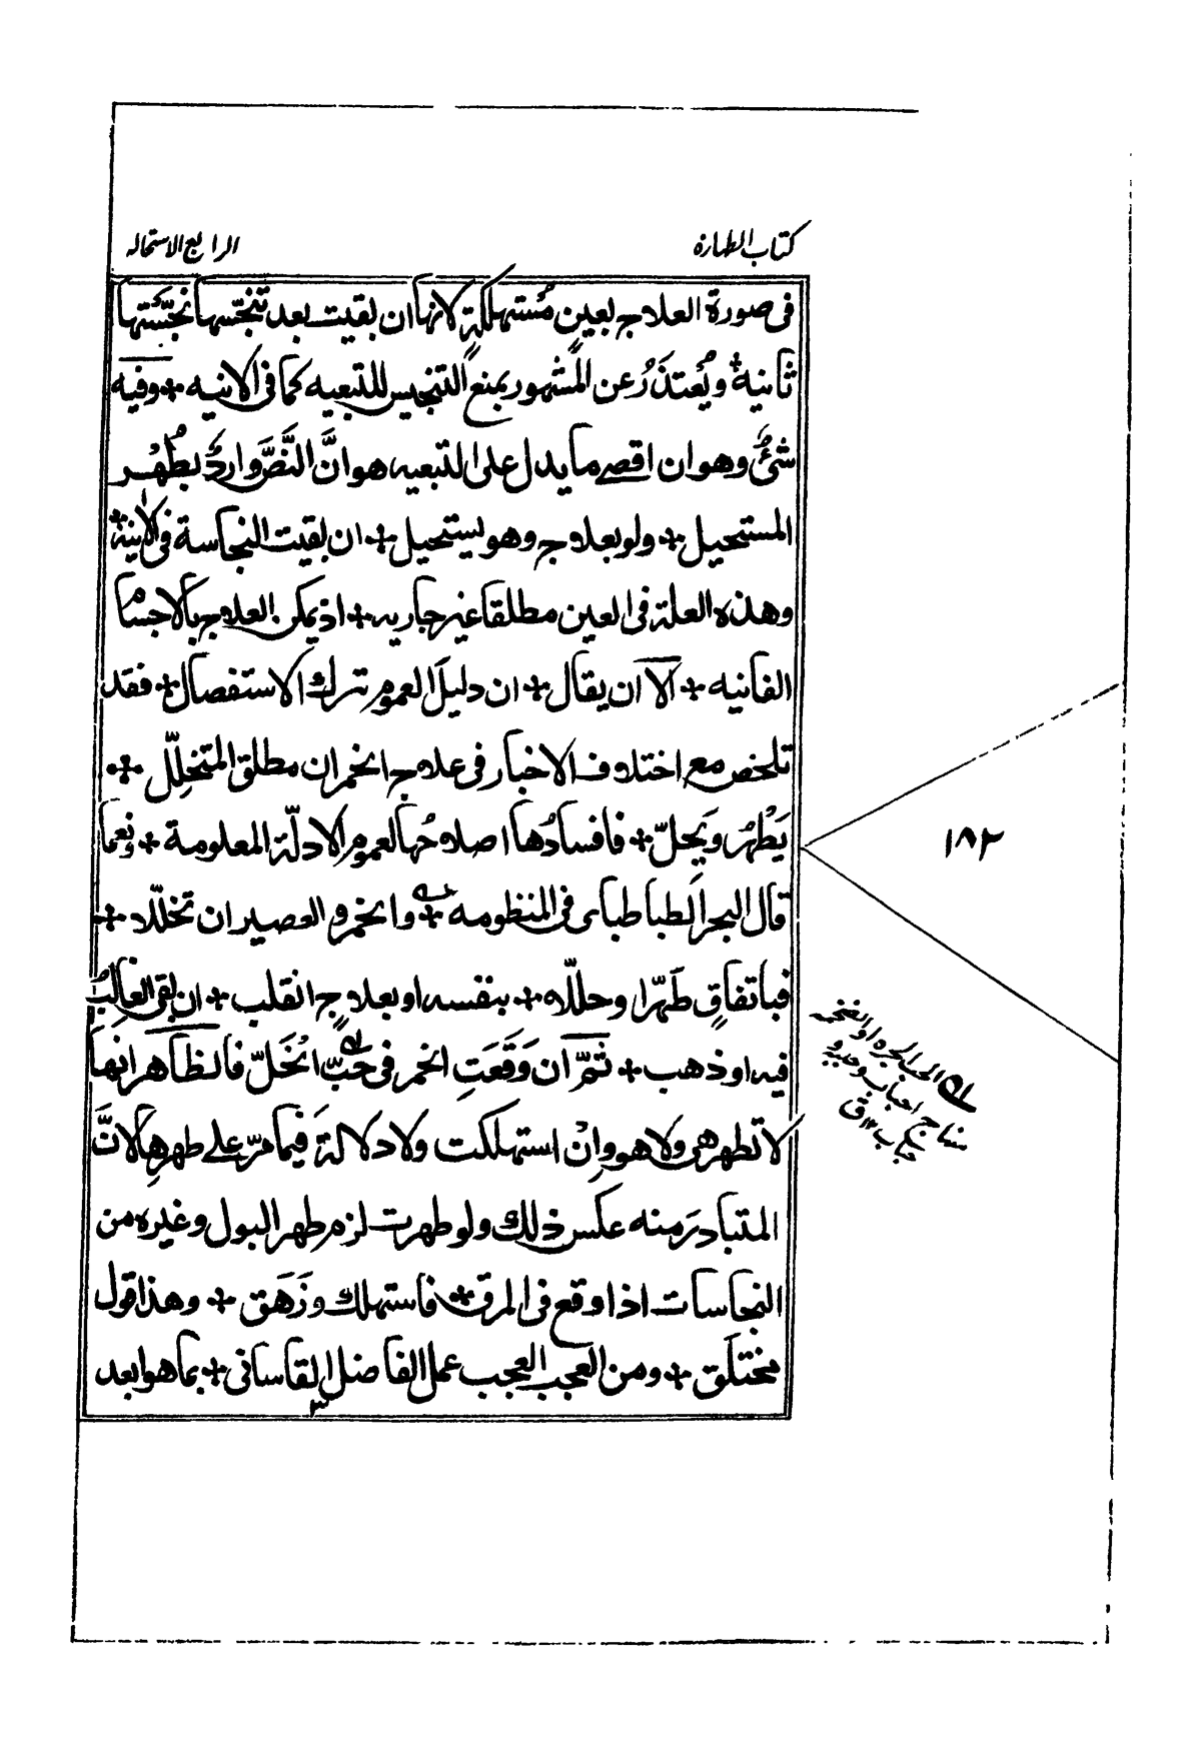 كتاب الطهارة
الرابع الاستحاله
فى صورة العلاج بعينٍ مُستهلكةٍ لانها ان بقيت بعد تنجّسها نجّستها
ثانيةً ويُعتذَرُ عن المشهور بمنع التنجيس للتبعيه كما فى الانيه + وفيه
شئٌ وهو ان اقصى ما يدل على التبعيه هو انَّ النَّصَّ واردٌ بطُهر
المستحيل + ولو بعلاج وهو يستحيل + ان بقيت النجاسة فى الانيةِ
وهذه العلة فى العين مطلقا غير جاريه + اذ يمكن العلاج بالاجسام
الفانيه + الا ان يقال + ان دليل العموم ترك الاستفصال + فقد
تلخص مع اختلاف الاخبار فى علاج الخمر ان مطلق المتخلِّل +
يَطْهُر ويَحِلّ + فافسادُها اصلاحُها لعموم الادلّة المعلومة + ونعما
قال البحر الطباطباى فى المنظومه + والخمر والعصير ان تخلّلا +
فباتفاقٍ طَهّرا وحلّلاه + بنفسه او بعلاجٍ انقلب + ان بقى الغالِبُ
فيه او ذهب + ثمّ ان وَقَعَتِ الخمر فى حُبّ الخَلّ فالظاهر انها
لا تطهر هى ولا هو وإنْ استهلكت ولا دلالةَ فيما مرّ على طهرها لانَّ
المتبادرَ منه عكس ذلك ولو طهرت لزم طهر البول وغيره من
النجاسات اذا وقع فى المرق + فاستهلك وزَهَق + وهذا قول
مختلَق + ومن العجب العجب عمل الفاضل القاسانى + بما هو ابعد
١٨٢
الحب الجره او الضخمه
منها ج احباب وحببه و
حباب ١٢ ق